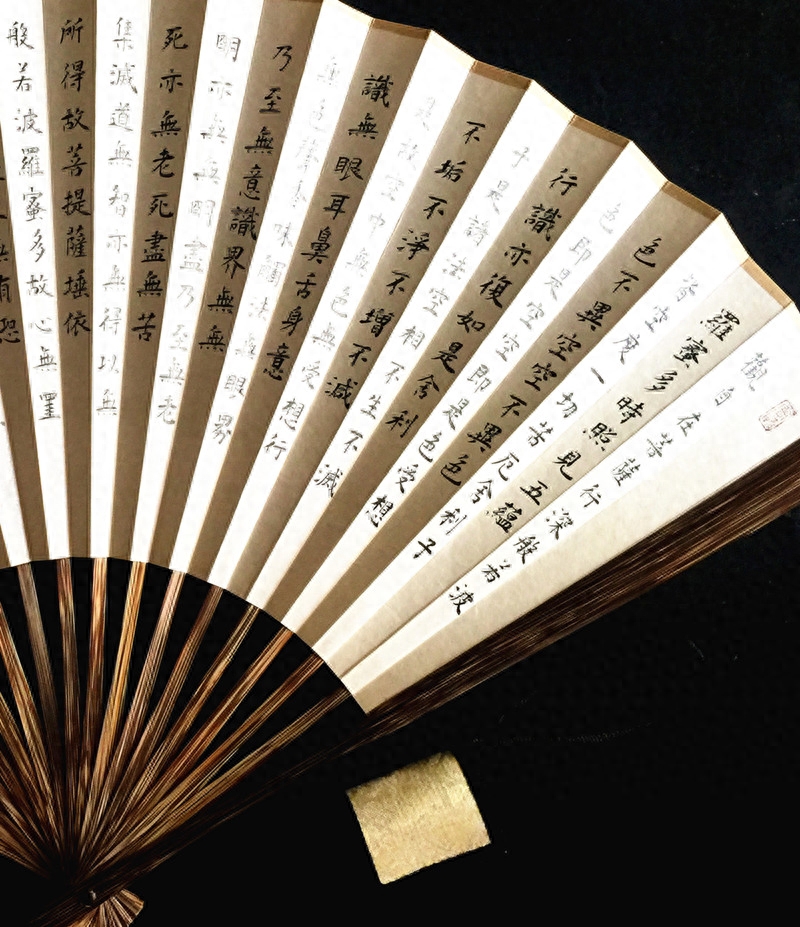 觀自在菩薩行深般若波
羅蜜多時照見五蘊
皆空度一切苦厄舍利子
色不異空空不異色
色即是空空即是色受想
行識亦復如是舍利
子是諸法空相不生不滅
不垢不淨不增不減
是故空中無色無受想行
識無眼耳鼻舌身意
無色聲香味觸法無眼界
乃至無意識界無無
明亦無無明盡乃至無老
死亦無老死盡無苦
集滅道無智亦無得以無
所得故菩提薩埵依
般若波羅蜜多故心無罣
無有恐